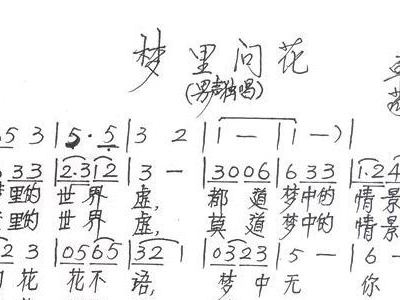 梦里问花
(男声独唱)
5 3 | 5 . 5 | 3 2 | 1 — | 1 — ) |
3 3 | 2.3 1 2 | 3 — | 3 0 0 6 | 6 3 3 | 1.2 4
里的 世界 虚, 都道梦中的 情景
里的 世界 虚, 莫道梦中的 情景
2 3 | 0 5 6 5 | 3 2 | 0 3 2 3 | 5 — | 6 —
花 花不 语, 梦中无 你